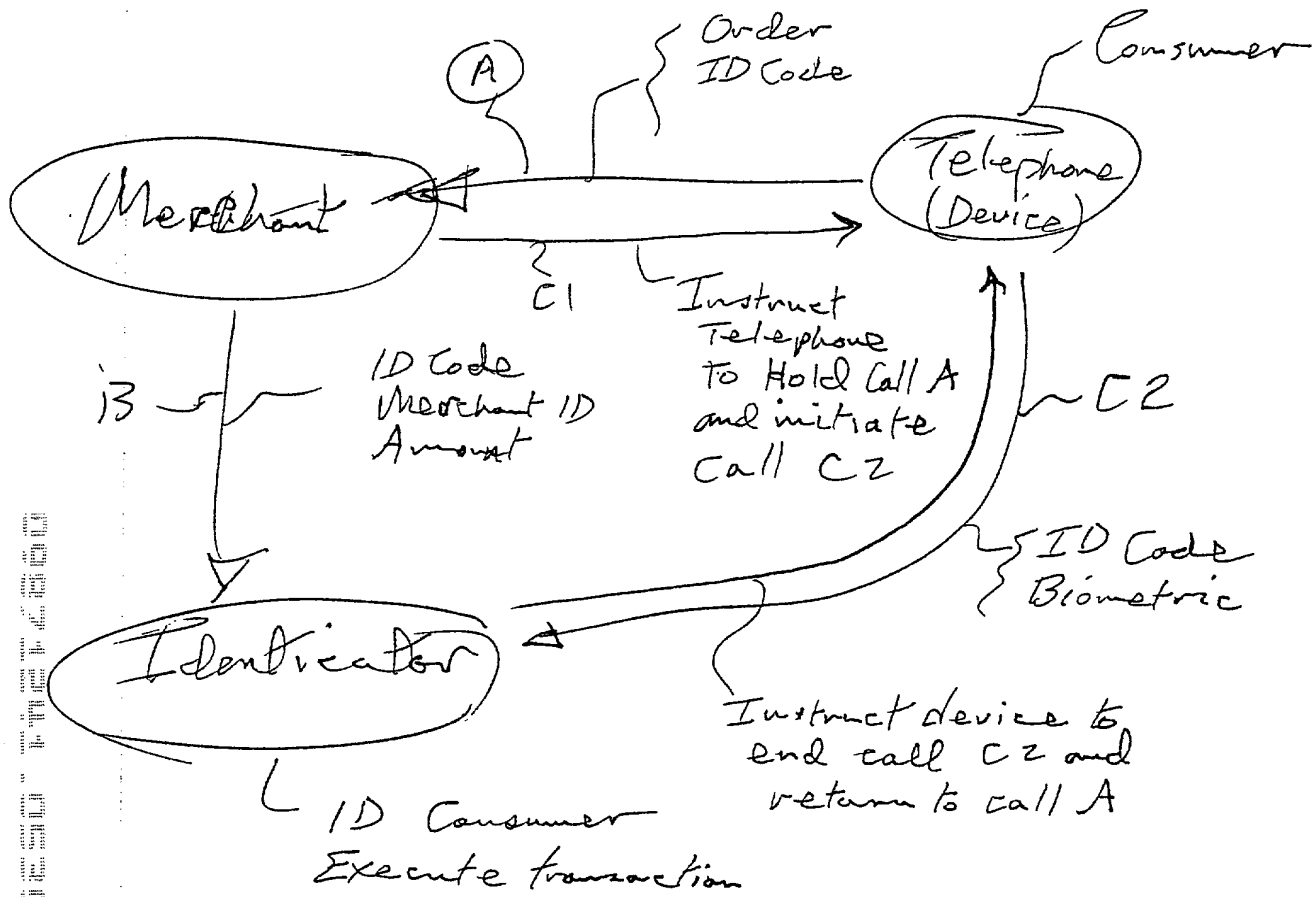 Order
ID Code
Consumer
A
Telephone
(Device)
Merchant
C1
Instruct
Telephone
to Hold Call A
and initiate
Call C2
B
ID Code
Merchant ID
Amount
C2
ID Code
Biometric
Identicator
Instruct device to
end call C2 and
return to call A
ID Consumer
Execute transaction